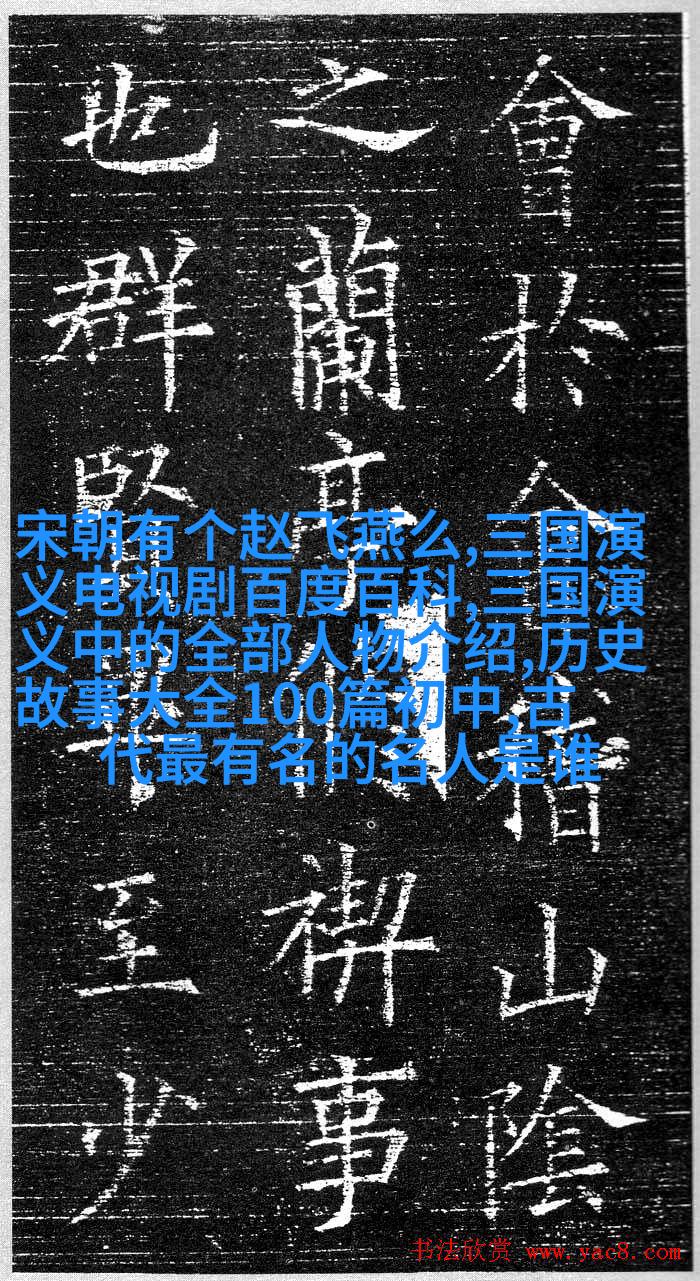 會於會稽山陰
之蘭亭禊事
也群賢至少
宋朝有个赵飞燕么,三国演
义电视剧百度百科,三国演
义中的全部人物介绍,历史
故事大全100篇初中,古
代最有名的名人是谁
书法欣赏 www.yac8.com